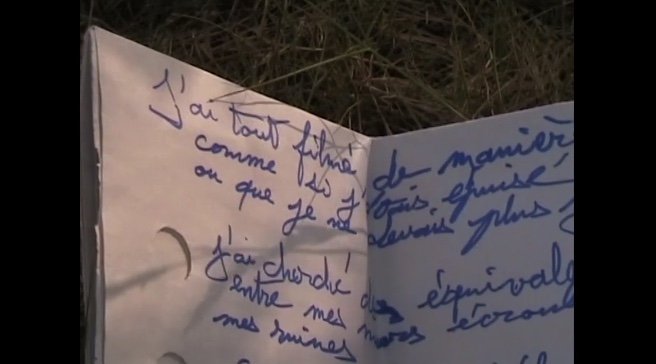 J'ai tout filmé de manièr
comme si j'étais épuisé
ou que je ne devais plus
j'ai cherché des équivale
entre mes murs écroul
mes ruines